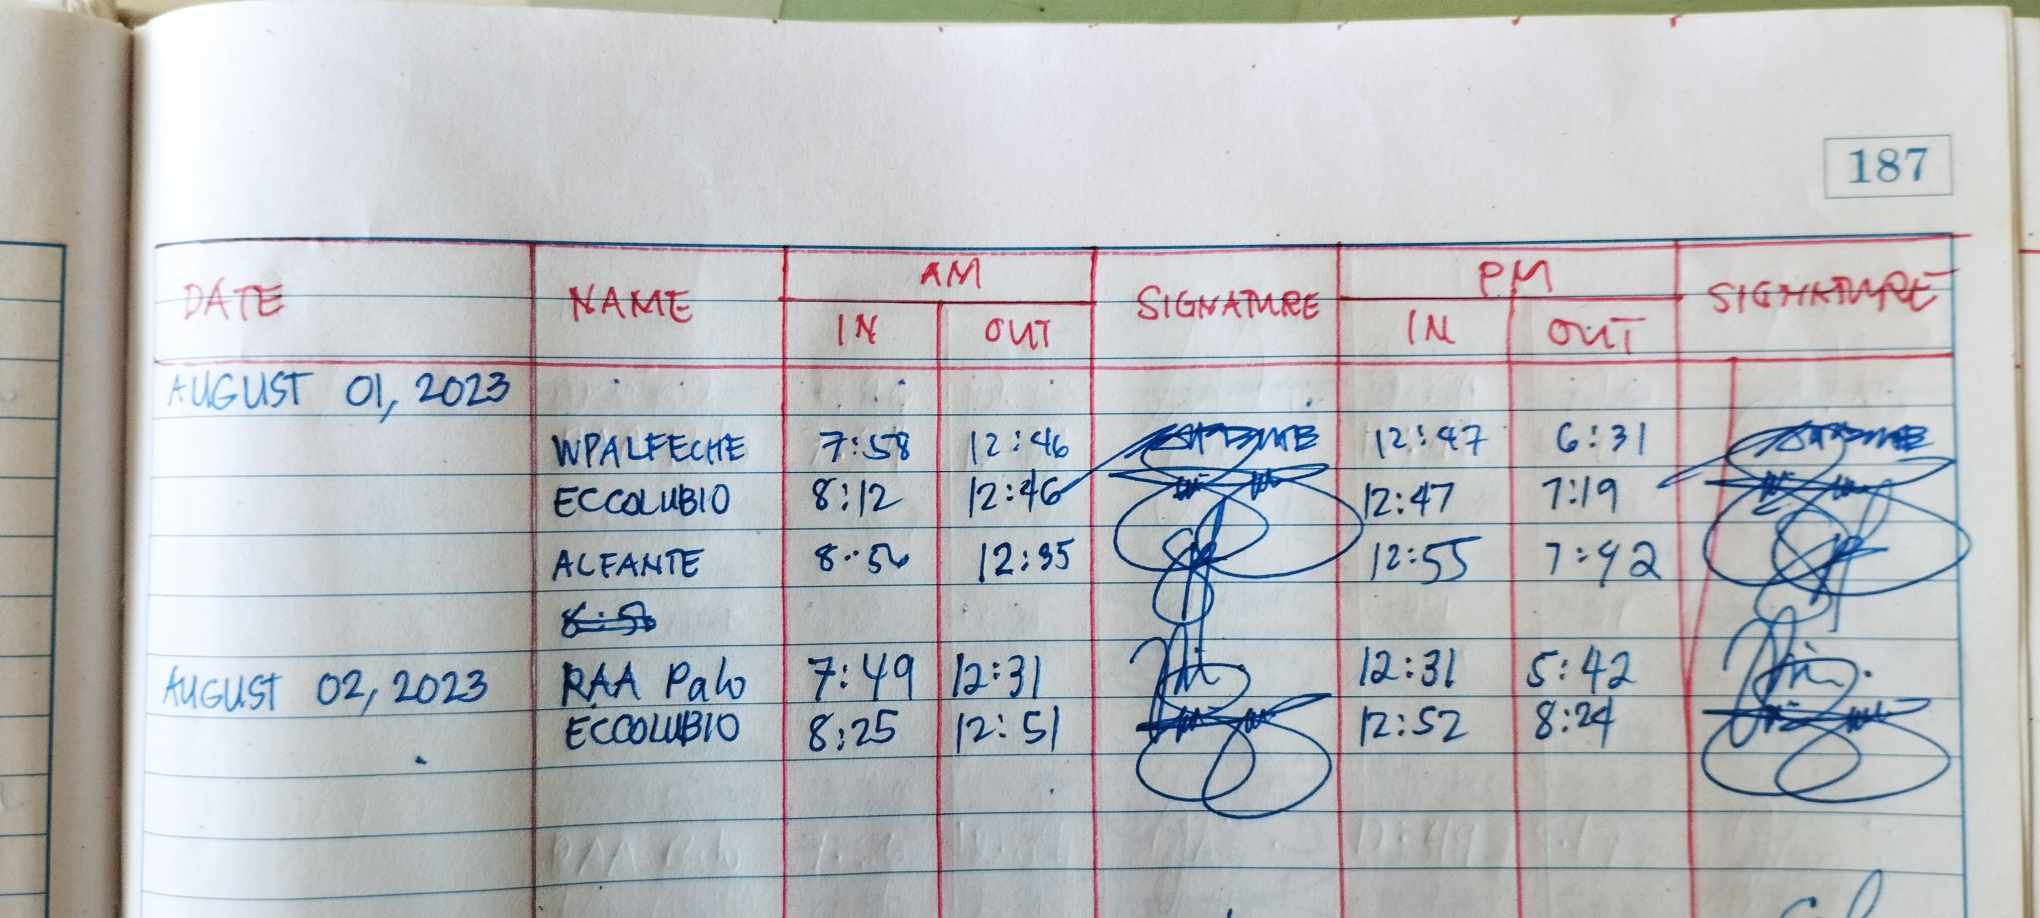 187
DATE NAME AM SIGNATURE PM SIGNATURE
IN OUT IN OUT
AUGUST 01, 2023
WPALFECHE 7:58 12:46 12:47 6:31
ECCOLUBIO 8:12 12:46 12:47 7:19
ALFANTE 12:35 12:55 7:42
AUGUST 02, 2023 RAA Palo 7:49 12:31 12:31 5:42
ECCOLUBIO 8:25 12:51 12:52 8:24